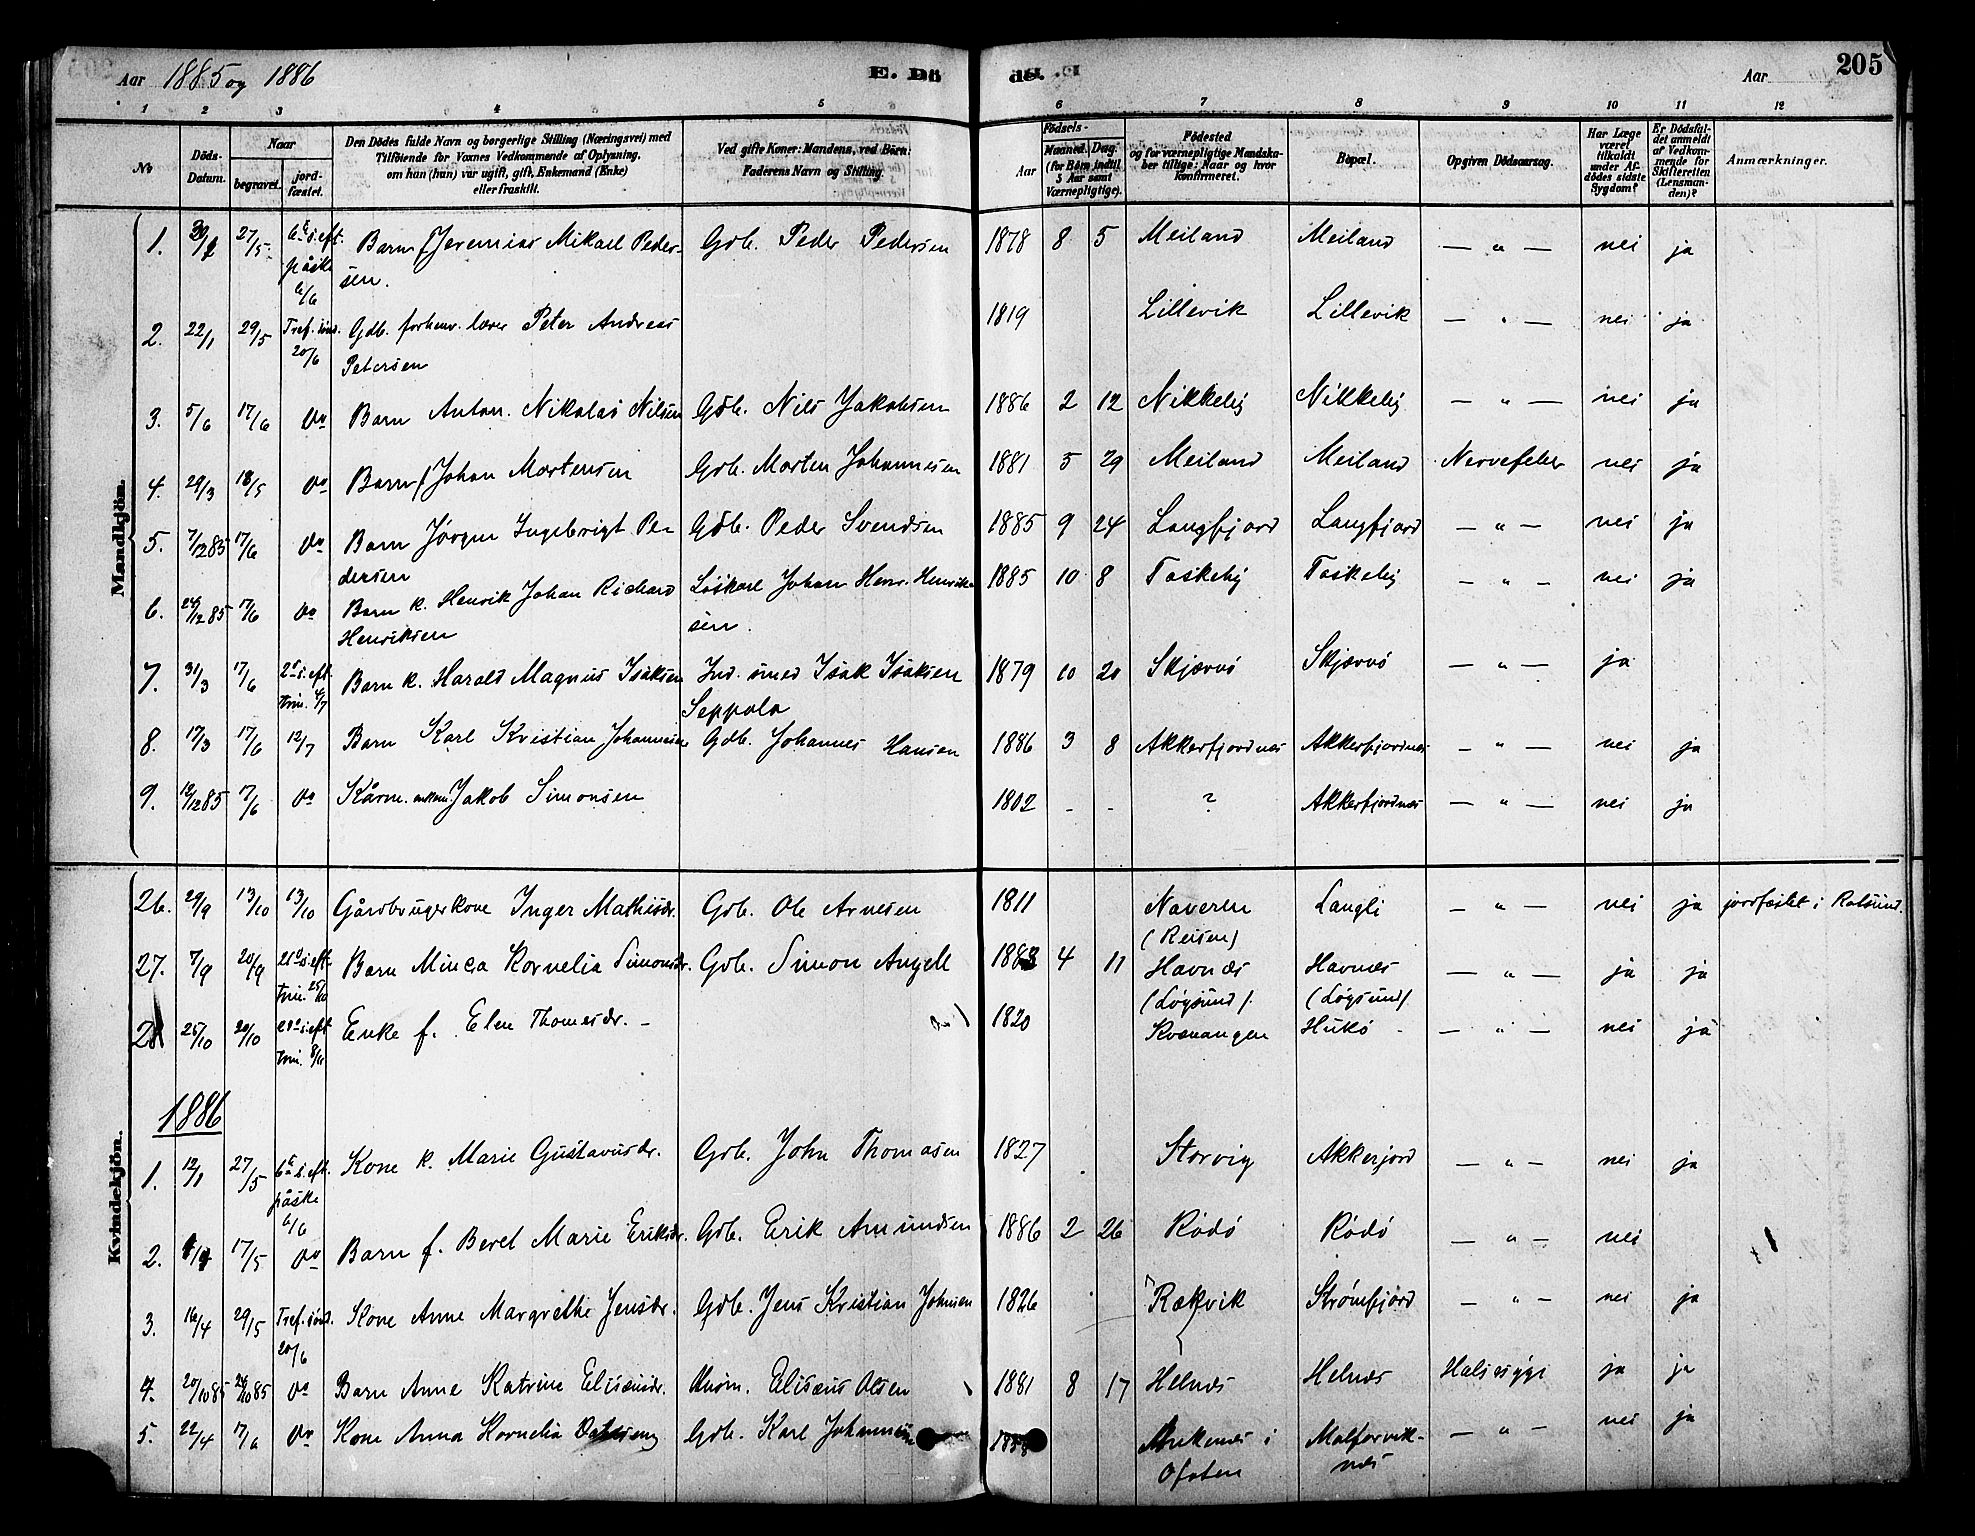 Aar 1885 og 1886 E. Dö de. Aar 205
1 2 3 4 5 6 7 8 9 10 11 12
No Döds-Datum. Naar begravet. jordfæstet. Den Dödes fulde Navn og borgerlige Stilling (Næringsvei) med Tilföiende for Voxnes Vedkommende af Oplysning, om han (hun) var ugift, gift, Enkemand (Enke) eller fraskilt. Ved gifte Koner: Mandens, ved Börn: Faderens Navn og Stilling. Födsels- Aar Maaned. Dag. (for Börn indtil 5 Aar samt Værnepligtige). Födested og for værnepligtige Mandskaber tillige: Naar og hvor konfirmeret. Bopæl. Opgiven Dödsaarsag. Har Læge været tilkaldt under Afdödes sidste Sygdom? Er Dödsfaldet anmeldt af Vedkommende for Skifteretten (Lensmanden)? Anmærkninger.
Mandkjön.
1. 27/5 6te s. eft. påske 6/6 Barn Jeremias Mikael Pedersen. Gdb. Peder Pedersen 1878 8 5 Meiland Meiland — " — nei ja
2. 22/1 29/5 Tref. sönd. 20/6 Gdb. forhenv. lærer Peter Andreas Petersen 1819 Lillevik Lillevik — " — nei ja
3. 5/6 17/6 do Barn Anton Nikolai Nilsen Gdb. Nils Jakobsen 1886 2 12 Nikkeby Nikkeby — " — nei ja
4. 29/3 18/5 do Barn Johan Mortensen Gdb. Morten Johannesen 1881 5 29 Meiland Meiland Nervefeber nei ja
5. 7/12 85 17/6 do Barn Jörgen Ingebrigt Pedersen Gdb. Peder Svendsen 1885 9 24 Langfjord Langfjord — " — nei ja
6. 24/12 85 17/6 do Barn k. Henrik Johan Richard Henriksen Löskarl Johan Henr. Henriksen. 1885 10 8 Taskeby Taskeby — " — nei ja
7. 31/3 17/6 2den s. eft. trin. 4/7 Barn k. Harald Magnus Isaksen Ind. smed Isak Isaksen Seppola 1879 10 20 Skjærvö Skjærvö — " — ja
8. 17/3 17/6 12/7 Barn Karl Kristian Johannesen Gdb. Johannes Hansen 1886 3 8 Akkerfjordnes Akkerfjordnes — " — nei ja
9. 12/12 85 17/6 do Kårm. enkem. Jakob Simonsen 1802 - - ? Akkerfjordnes — " — nei ja
Kvindekjön.
26. 29/9 13/10 13/10 Gårdbrugerkone Inger Mathisdr. Gdb. Ole Arnesen 1811 Naveren (Reisen) Langli — " — nei ja jordfæstet i Rotsund.
27. 7/9 20/9 21de s. eft. trin. 25/10 Barn Minca Kornelia Simonsdr. Gdb. Simon Angell 1883 4 11 Havnæs (Lögsund). Havnæs (Lögsund). — " — ja ja
28 25/10 20/10 s. eft. trin. 8/11 Enke f. Elen Thomesdr. - 1820 Kvænangen Hukö — " — nei ja
1886
1. 12/1 27/5 6te s. eft. påske 6/6 Kone k. Marie Gustavusdr. Gdb. John Thomasen 1827 Storvig Akkerjord — " — nei ja
2. 17/5 do Barn f. Beret Marie Eriksdr. Gdb. Erik Amundsen 1886 2 26 Rödö Rödö — " — nei
3. 16/4 29/5 Tref. sönd. 20/6 Kone Anne Margrethe Jensdr. Gdb. Jens Kristian Johnsen 1826 Rækvik Strömfjord — " — nei ja
4. 20/10 85 24/10 85 do Barn Anne Katrine Elisæusdr. Elisæus Olsen 1881 8 17 Helnæs Helnæs Halsesyge ja ja
5. 22/4 17/6 do Kone Anna Kornelia Gdb. Karl Johannesen Ankenes i Ofoten Malforviknæs — " — nei ja